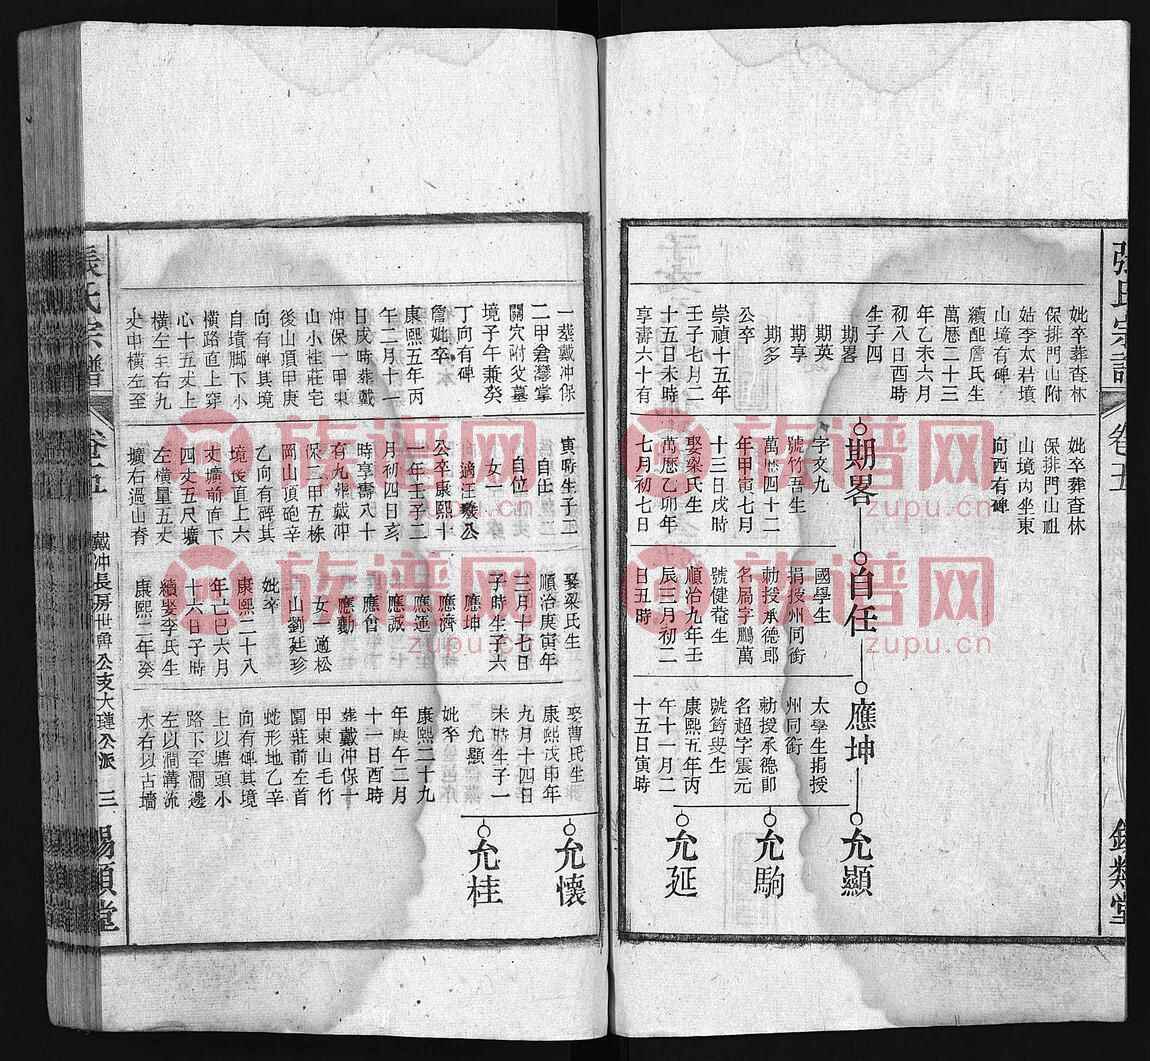 張氏宗譜
卷五
錫類堂
妣卒葬查林
保排門山附
姑李太君墳
山境有碑
續配詹氏生
萬厯二十三
年乙未六月
初八日酉時
生子四
期畧
期英
期享
期多
公卒
崇禎十五年
壬子七月二
十五日未時
享壽六十有
妣卒葬查林
保排門山祖
山境內坐東
向西有碑
期畧
字文九
號竹吾生
萬厯四十二
年甲寅七月
十三日戌時
娶梁氏生
萬厯乙卯年
七月初七日
自任
國學生
捐授州同銜
勅授承德郎
名局字鵬萬
號健菴生
順治九年壬
辰三月初二
日丑時
應坤
太學生捐授
州同銜
勅授承德郎
名超字震元
生
康熙五年丙
午十一月二
十五日寅時
允顯
允駒
允延
一葬戴冲保
二甲倉灣掌
關穴附父墓
境子午兼癸
丁向有碑
詹妣卒
康熙五年丙
午二月十一
日戌時葬戴
冲保一甲東
山小桂莊宅
後山頂甲庚
向有碑其境
自墳脚下小
橫路直上穿
心十五丈上
橫左至右九
丈中橫左至
寅時生子二
自任
自位
女一
適汪
公卒康熙十
一年壬子二
月初四日亥
時享壽八十
有九葬戴冲
保二甲五栋
岡山頂砲辛
乙向有碑其
境後直上六
丈壙前直下
四丈五尺壙
左橫量五丈
壙右過山脊
娶梁氏生
順治庚寅年
三月十七日
子時生子六
應坤
應濟
應運
應誠
應會
應勳
女一適松
山劉廷珍
妣卒
康熙二十八
年己巳六月
十六日子時
續娶李氏生
康熙二年癸
娶曹氏生
康熙戊申年
九月十四日
未時生子一
允顯
妣卒
康熙二十九
年庚午二月
十一日酉時
葬戴冲保一
甲東山毛竹
園莊前左首
蛇形地乙辛
向有碑其境
上以塘頭小
路下至澗邊
左以澗溝流
水右以古墻
允懷
允桂
張氏宗譜
卷五
戴冲長房世魯公支大璉公派
三
錫類堂
族谱网
zupu.cn
族谱网
zupu.cn
族谱网
zupu.cn
族谱网
zupu.cn